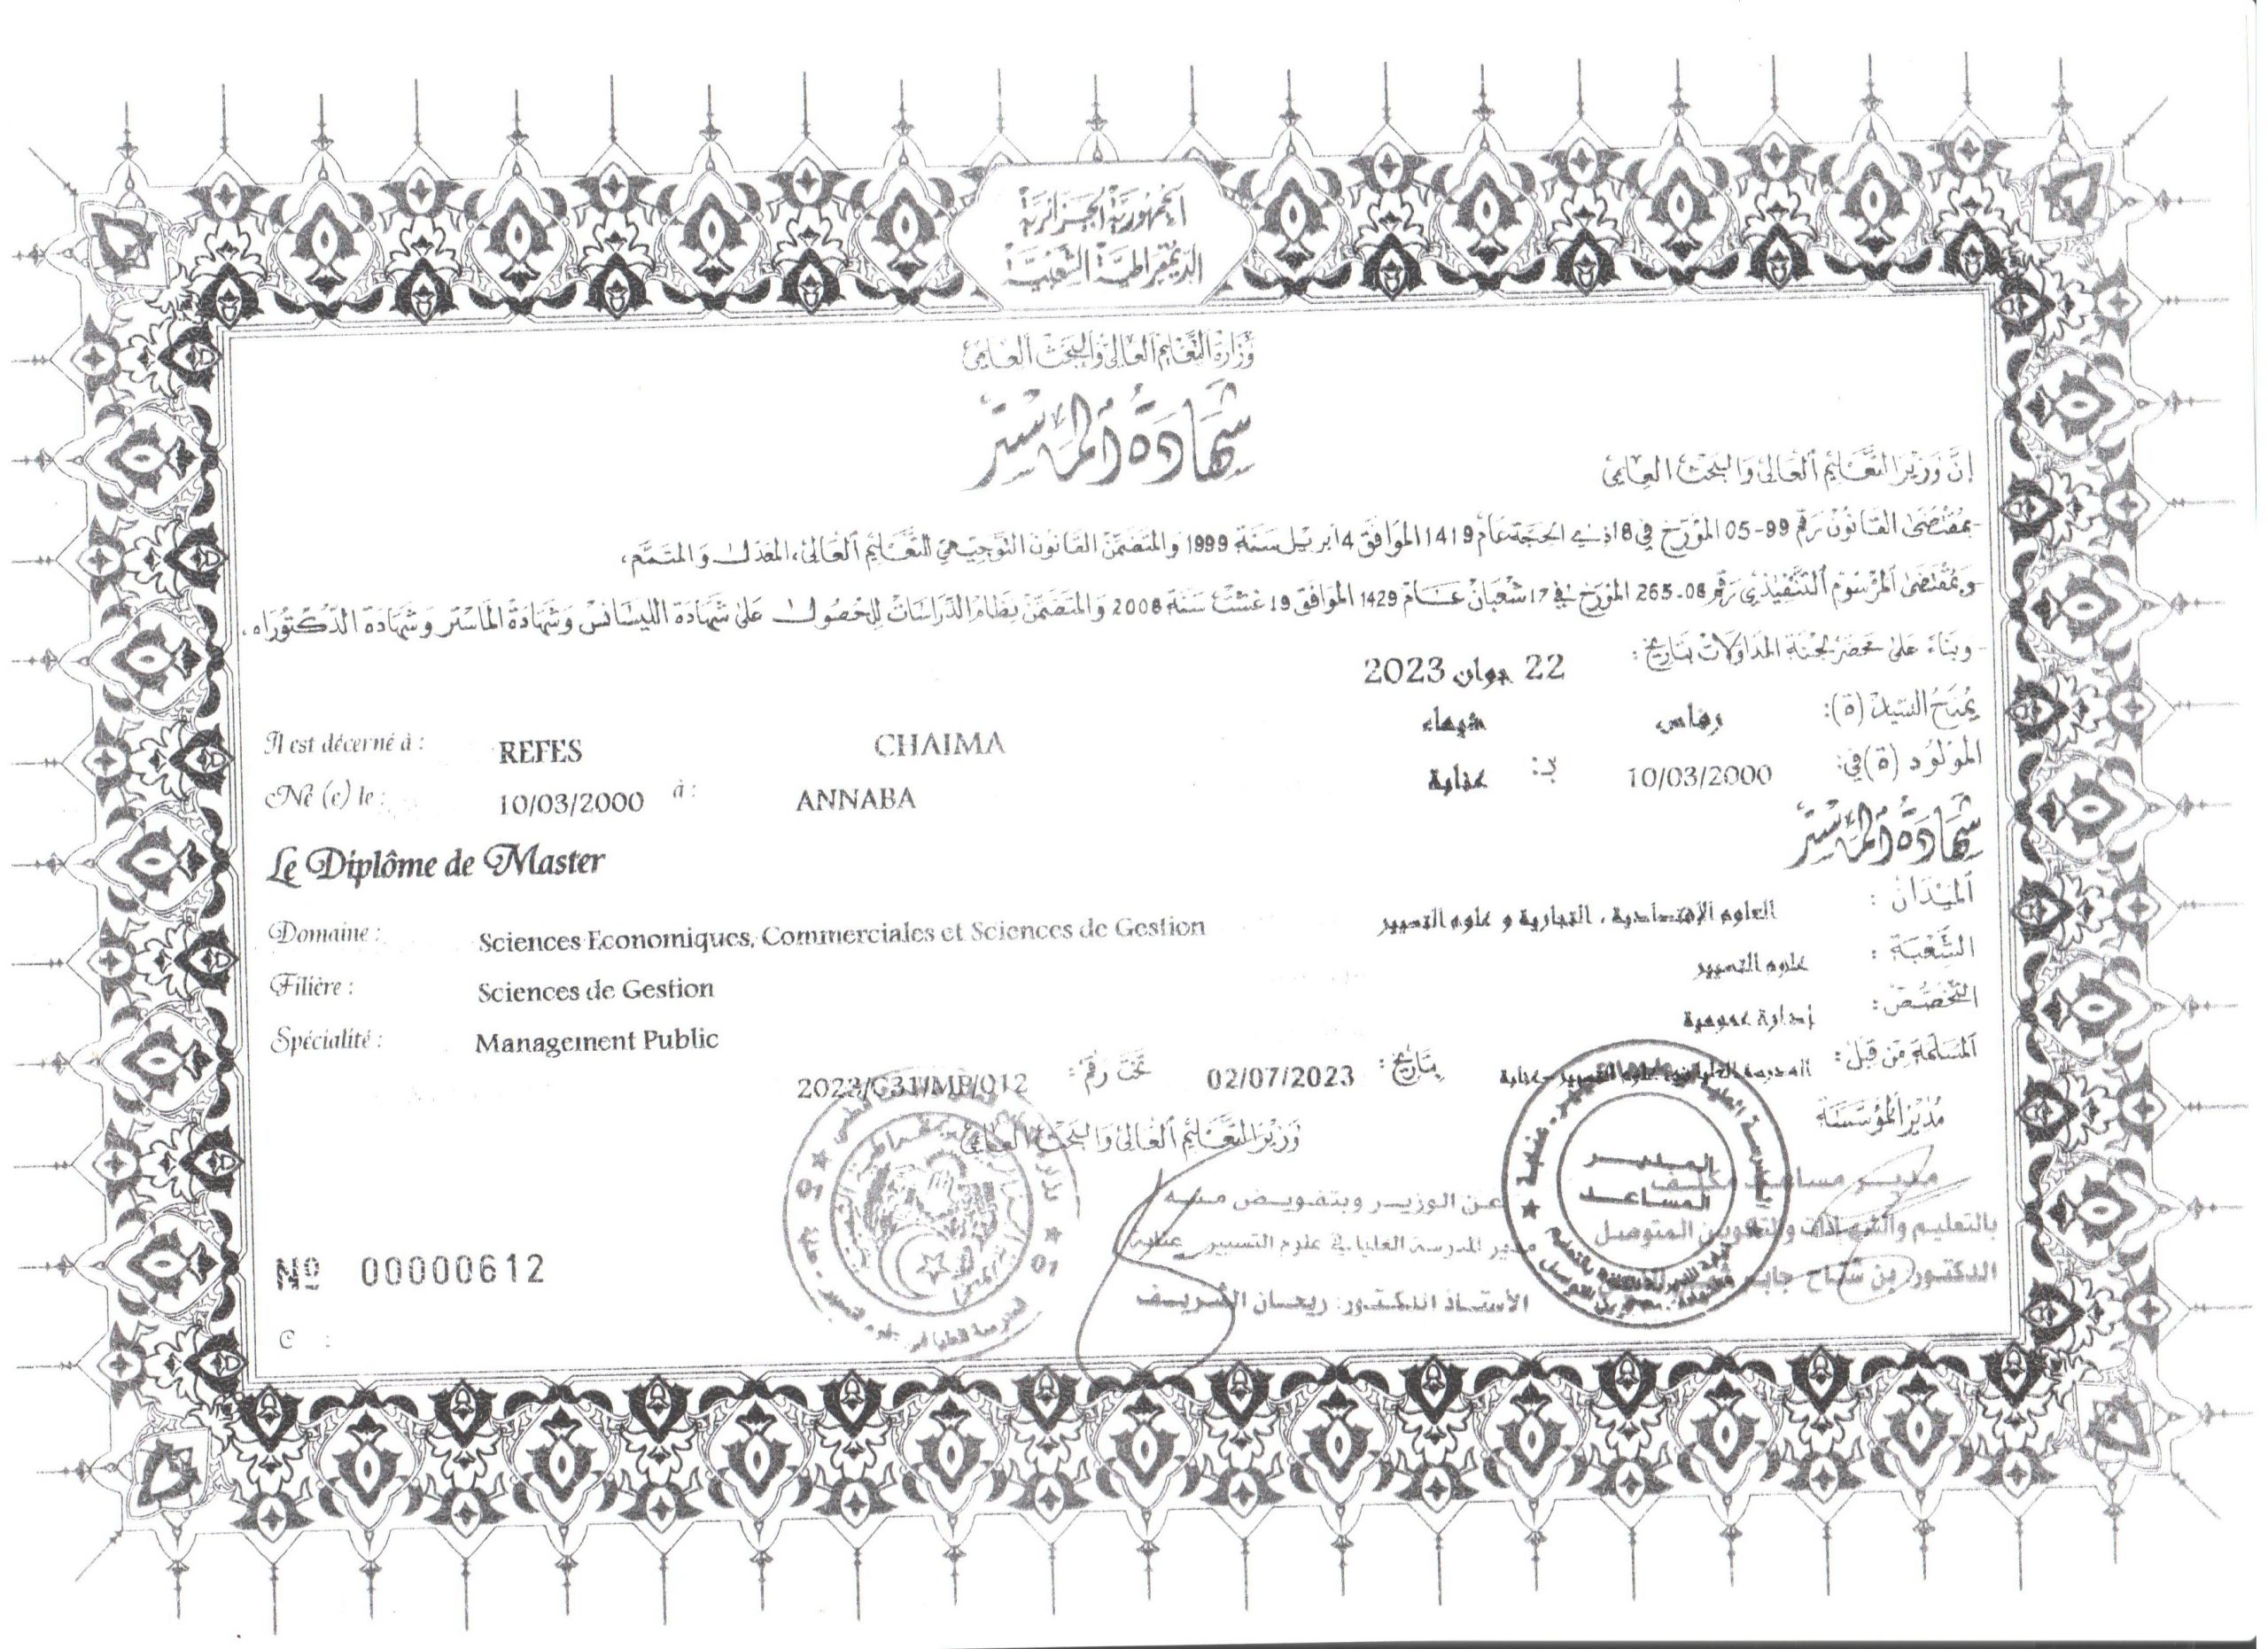 الجمهورية الجزائرية
الديمقراطية الشعبية
وزارة التعليم العالي والبحث العلمي
شهادة الماستر
إن وزير التعليم العالي والبحث العلمي
- بمقتضى القانون رقم 99-05 المؤرخ في 18 ذي الحجة عام 1419 الموافق 4 أبريل سنة 1999 والمتضمن القانون التوجيهي للتعليم العالي، المعدل والمتمم،
- وبمقتضى المرسوم التنفيذي رقم 08-265 المؤرخ في 17 شعبان عام 1429 الموافق 19 غشت سنة 2008 والمتضمن نظام الدراسات للحصول على شهادة الليسانس وشهادة الماستر وشهادة الدكتوراه.
- وبناء على محضر لجنة المداولات بتاريخ: 22 جوان 2023
يمنح السيد (ة): رفاس شيماء
Il est décerné à : REFES CHAIMA
المولود (ة) في: 10/03/2000 بـ: عنابة
Né (e) le : 10/03/2000 à : ANNABA
شهادة الماستر
Le Diplôme de Master
الميدان : العلوم الإقتصادية ، التجارية و علوم التسيير
Domaine : Sciences Economiques, Commerciales et Sciences de Gestion
الشعبة : علوم التسيير
Filière : Sciences de Gestion
التخصص: إدارة عمومية
Spécialité : Management Public
المسلمة من قبل: المدرسة العليا في علوم التسيير -عنابة بتاريخ: 02/07/2023 تحت رقم: 2023/G31/MP/012
مدير المؤسسة
وزير التعليم العالي والبحث العلمي
مدير مساعد مكلف
بالتعليم والشهادات والتكوين المتوصل
الدكتور: بن شماح جابر
المدير
المساعد
عن الوزير وبتفويض منه
مدير المدرسة العليا في علوم التسيير عنابة
الأستاذ الدكتور: ريحان الشريف
Nº 00000612
C :